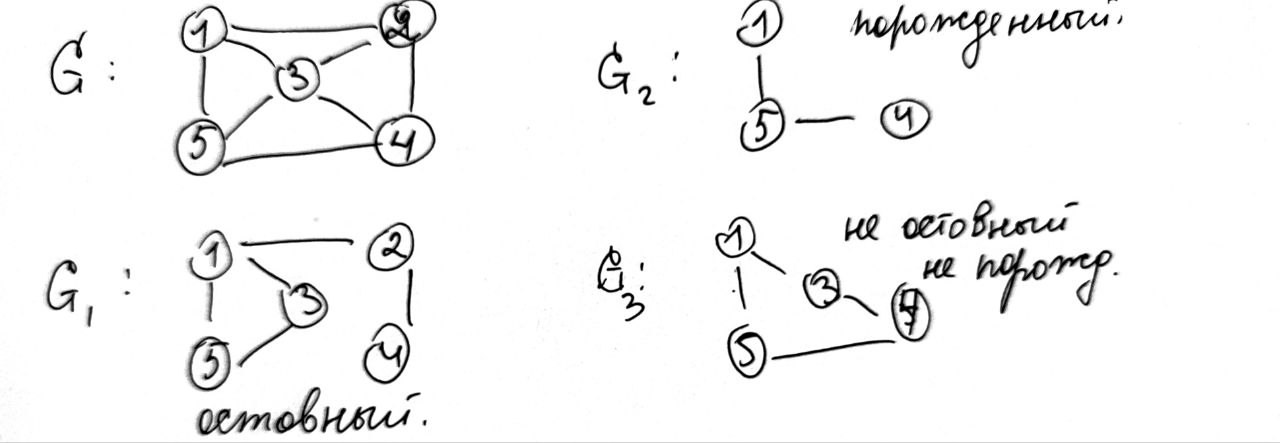 G :
1
2
3
5
4
G₂ :
1
5
4
порожденный.
G₁ :
1
2
3
5
4
остовный.
G₃ :
1
3
4
5
не остовный
не порожд.